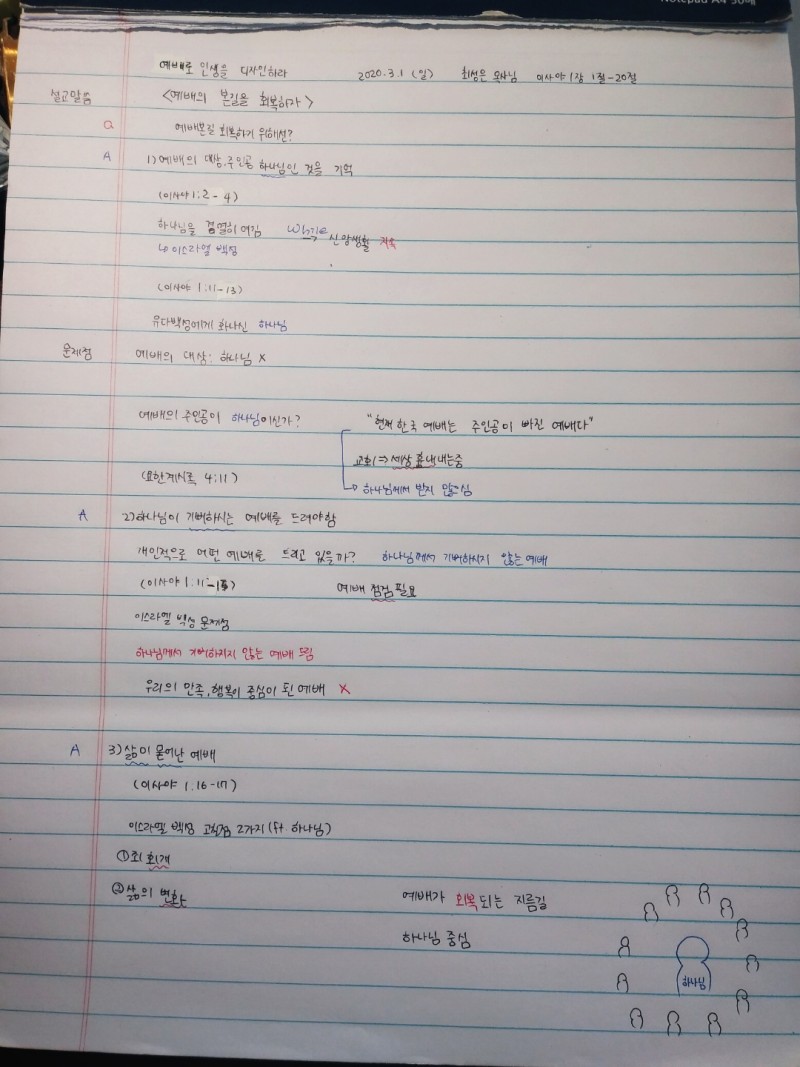 Notepad A4 50매
예배로 인생을 디자인하라 2020.3.1 (일) 최성은 목사님 이사야 1장 1절-20절
설교말씀 <예배의 본질을 회복하라>
Q 예배본질 회복하기 위해선?
A 1) 예배의 대상, 주인공 하나님인 것을 기억
(이사야 1:2-4)
하나님을 경멸히 여김 신앙생활 지속
↳ 이스라엘 백성
(이사야 1:11-13)
유다백성에게 화나신 하나님
문제점 예배의 대상: 하나님 X
예배의 주인공이 하나님이신가? "현재 한국 예배는 주인공이 빠진 예배다"
교회 => 세상 흉내내는중
(요한계시록 4:11) → 하나님에서 받지 않으심
A 2) 하나님이 기뻐하시는 예배를 드려야함
개인적으로 어떤 예배를 드리고 있을까? 하나님에서 기뻐하시지 않는 예배
(이사야 1:11-15) 예배 점검 필요
이스라엘 백성 문제점
하나님에서 기뻐하지 않는 예배 드림
우리의 만족, 행복이 중심이 된 예배 X
A 3) 삶이 묻어난 예배
(이사야 1:16-17)
이스라엘 백성 고칠점 2가지 (ft. 하나님)
① 죄 회개
② 삶의 변화 예배가 회복되는 지름길
하나님 중심
하나님